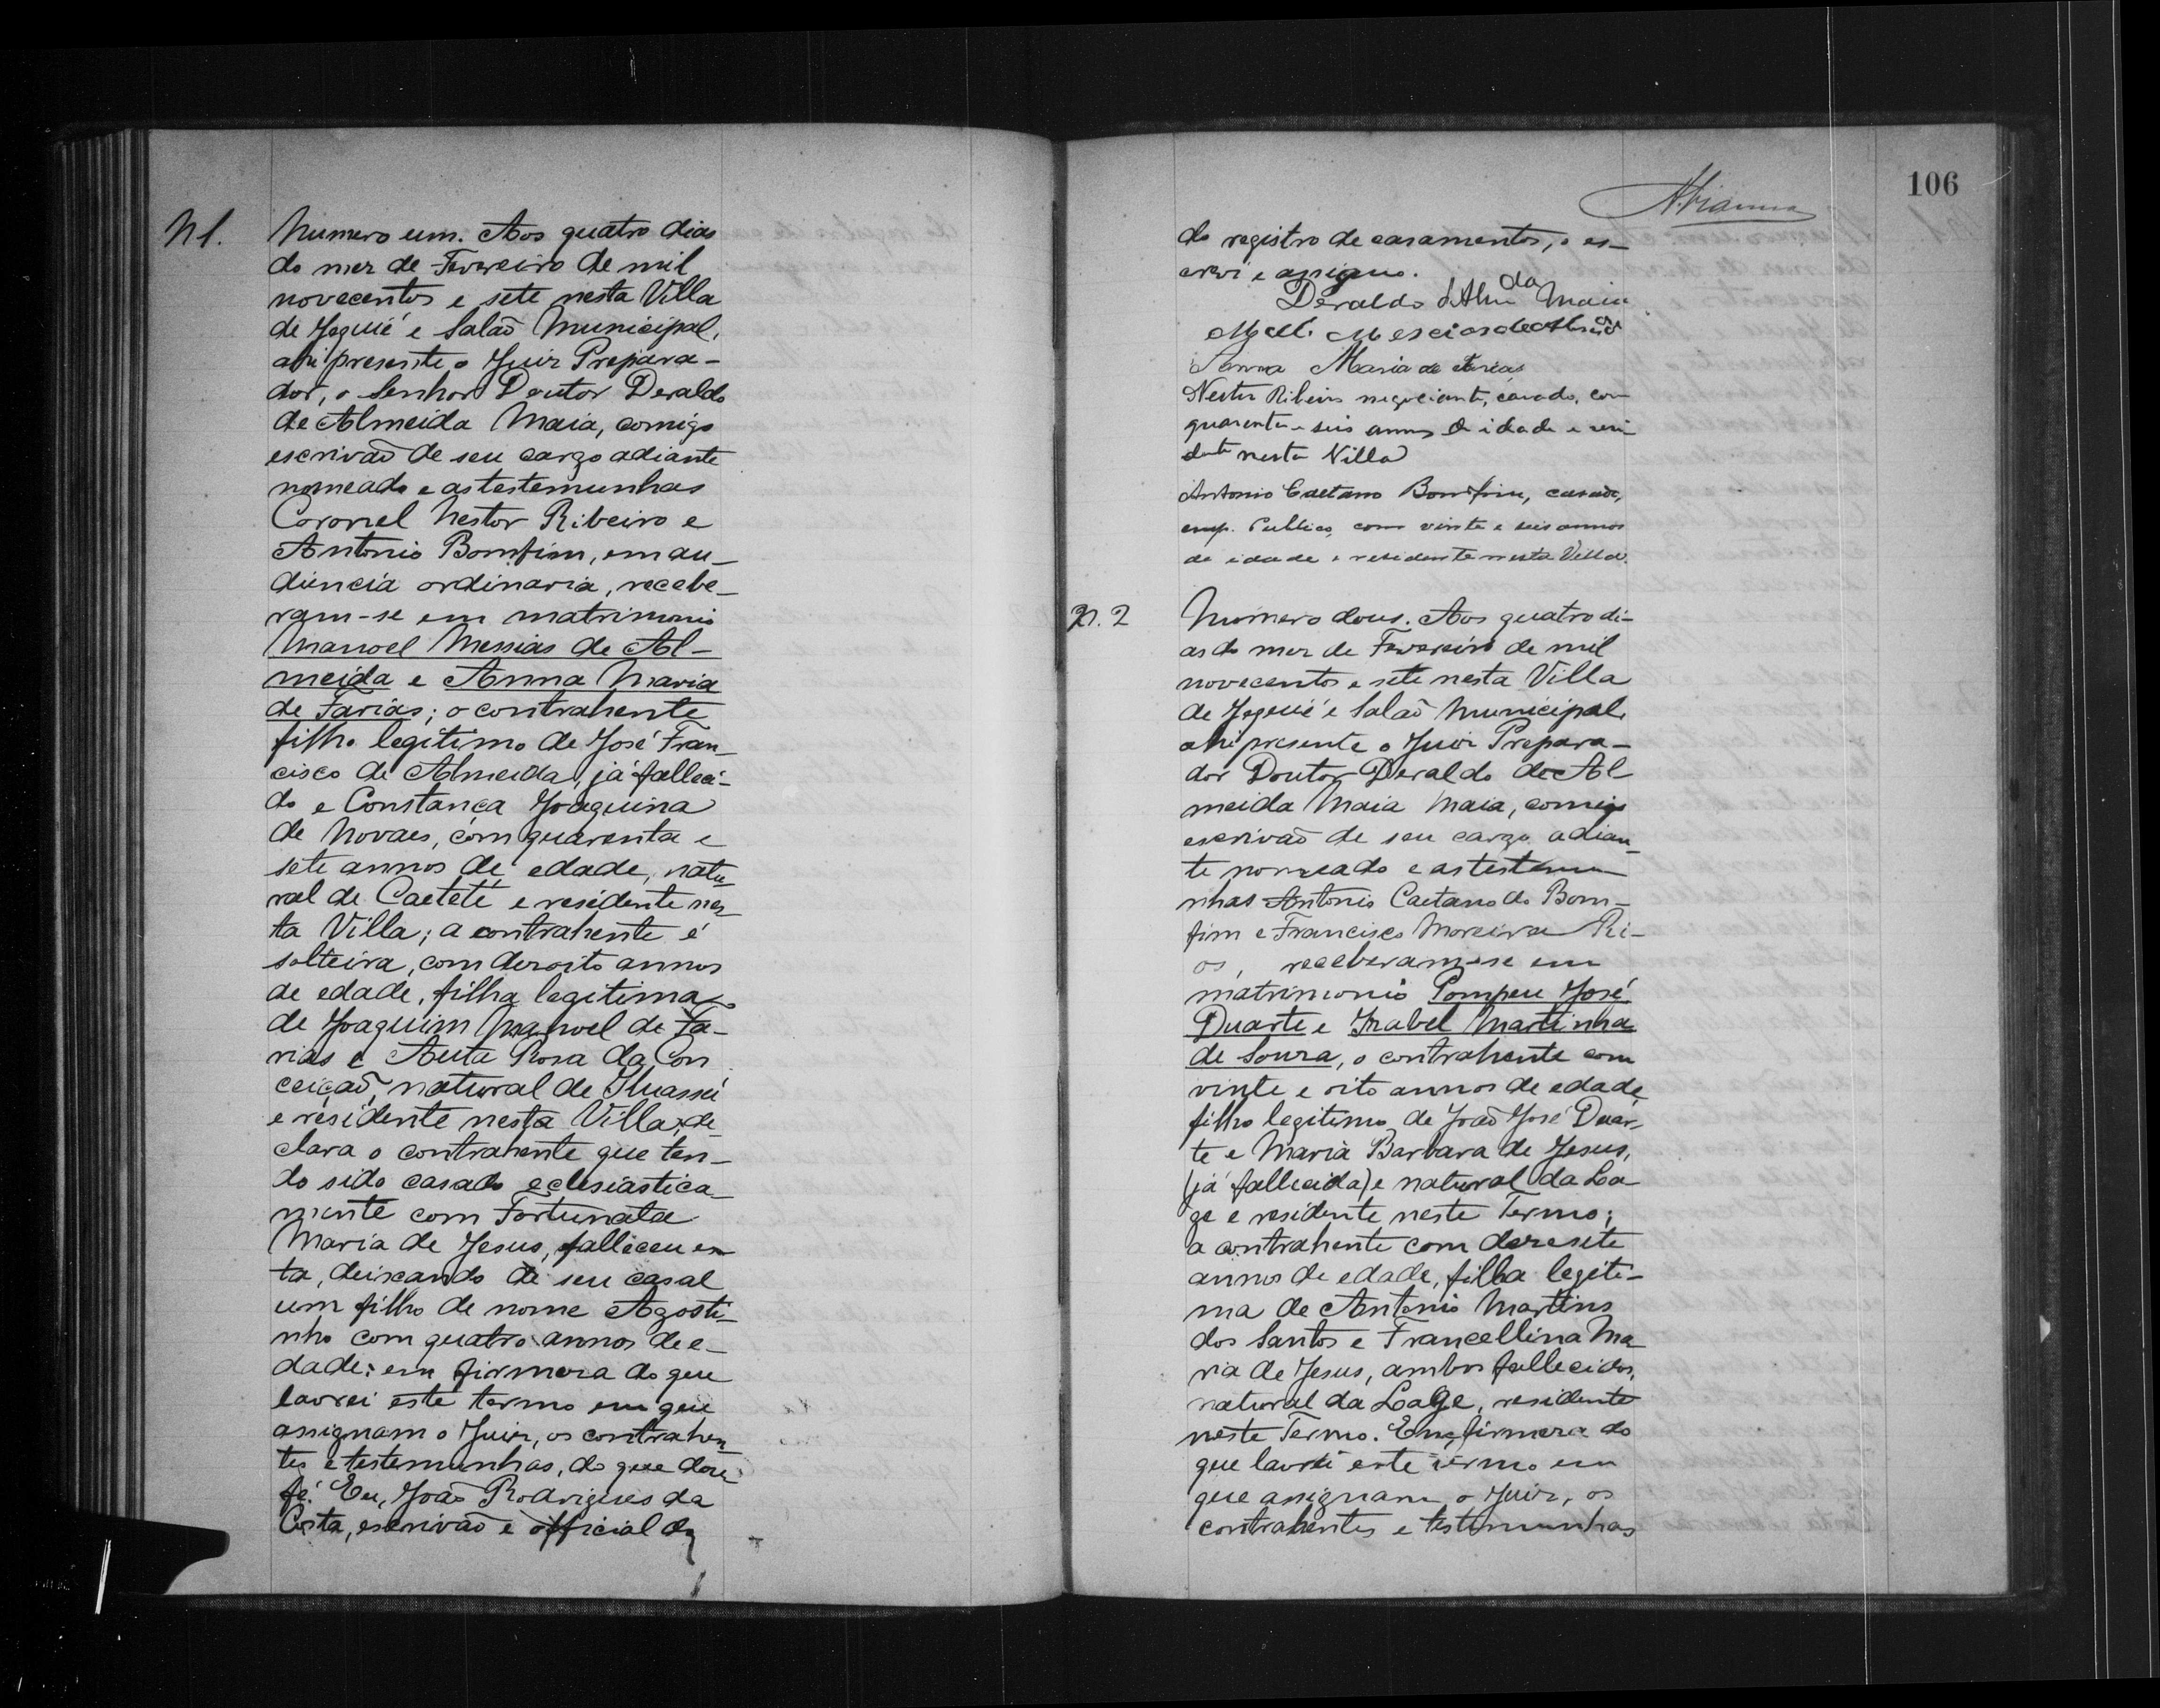 N 1.
Numero um. Aos quatro dias
do mez de Fevereiro de mil
novecentos e sete nesta Villa
de Jequié e Salão Municipal,
ahi presente o Juiz Prepara-
dor, o Senhor Doutor Deraldo
de Almeida Maia, comigo
escrivão de seu cargo adiante
nomeado e as testemunhas
Coronel Nestor Ribeiro e
Antonio Bomfim, em au-
diencia ordinaria, recebe-
ram-se em matrimonio
Manoel Messias de Al-
meida e Anna Maria
de Farias; o contrahente
filho legitimo de José Fran-
cisco de Almeida, já falleci-
do e Constança Joaquina
de Novaes, com quarenta e
sete annos de edade, natu-
ral de Caeteté e residente nes-
ta Villa; a contrahente é
solteira, com dezoito annos
de edade, filha legitima
de Joaquim Manoel de Fa-
rias e Auta Rosa da Con
ceição, natural de Ituassú
e residente nesta Villa; de-
clara o contrahente que ten-
do sido casado eclesiastica-
mente com Fortunata
Maria de Jesus, falleceu es-
ta, deixando de seu casal
um filho de nome Agosti-
nho com quatro annos de e-
dade: em firmeza do que
lavrei este termo em que
assignam o Juiz, os contrahen-
tes e testemunhas, do que dou
fé. Eu, João Rodrigues da
Costa, escrivão e official do
106
A. Vianna
do registro de casamentos, o es-
crevi e assigno.
Deraldo d'Almda Maia
Mel. Mescias de Almda
Anna Maria de Farias
Nestor Ribeiro negociante, casado, com
quarenta e seis annos de idade e resi
dente nesta Villa
Antonio Caetano Bomfim, casado,
emp. Publico, com vinte e seis annos
de idade e residente nesta Villa.
N. 2
Numero dous. Aos quatro di-
as do mez de Fevereiro de mil
novecentos e sete nesta Villa
de Jequié e Salão Municipal,
ahi presente o Juiz Prepara-
dor Doutor Deraldo de Al
meida Maia Maia, comigo
escrivão de seu cargo adian-
te nomeado e as testemu-
nhas Antonio Caetano do Bom-
fim e Francisco Moreira Ri-
os, receberam-se em
matrimonio Pompeu José
Duarte e Izabel Martinha
de Souza, o contrahente com
vinte e oito annos de edade,
filho legitimo de João José Duar-
te e Maria Barbara de Jesus,
(já fallecida) e natural da La-
ge e residente neste Termo;
a contrahente com dezesete
annos de edade, filha legiti-
ma de Antonio Martins
dos Santos e Francellina Ma-
ria de Jesus, ambos fallecidos,
natural da Lage, residente
neste Termo. Em firmeza do
que lavrei este termo em
que assignam o Juiz, os
contrahentes e testemunhas